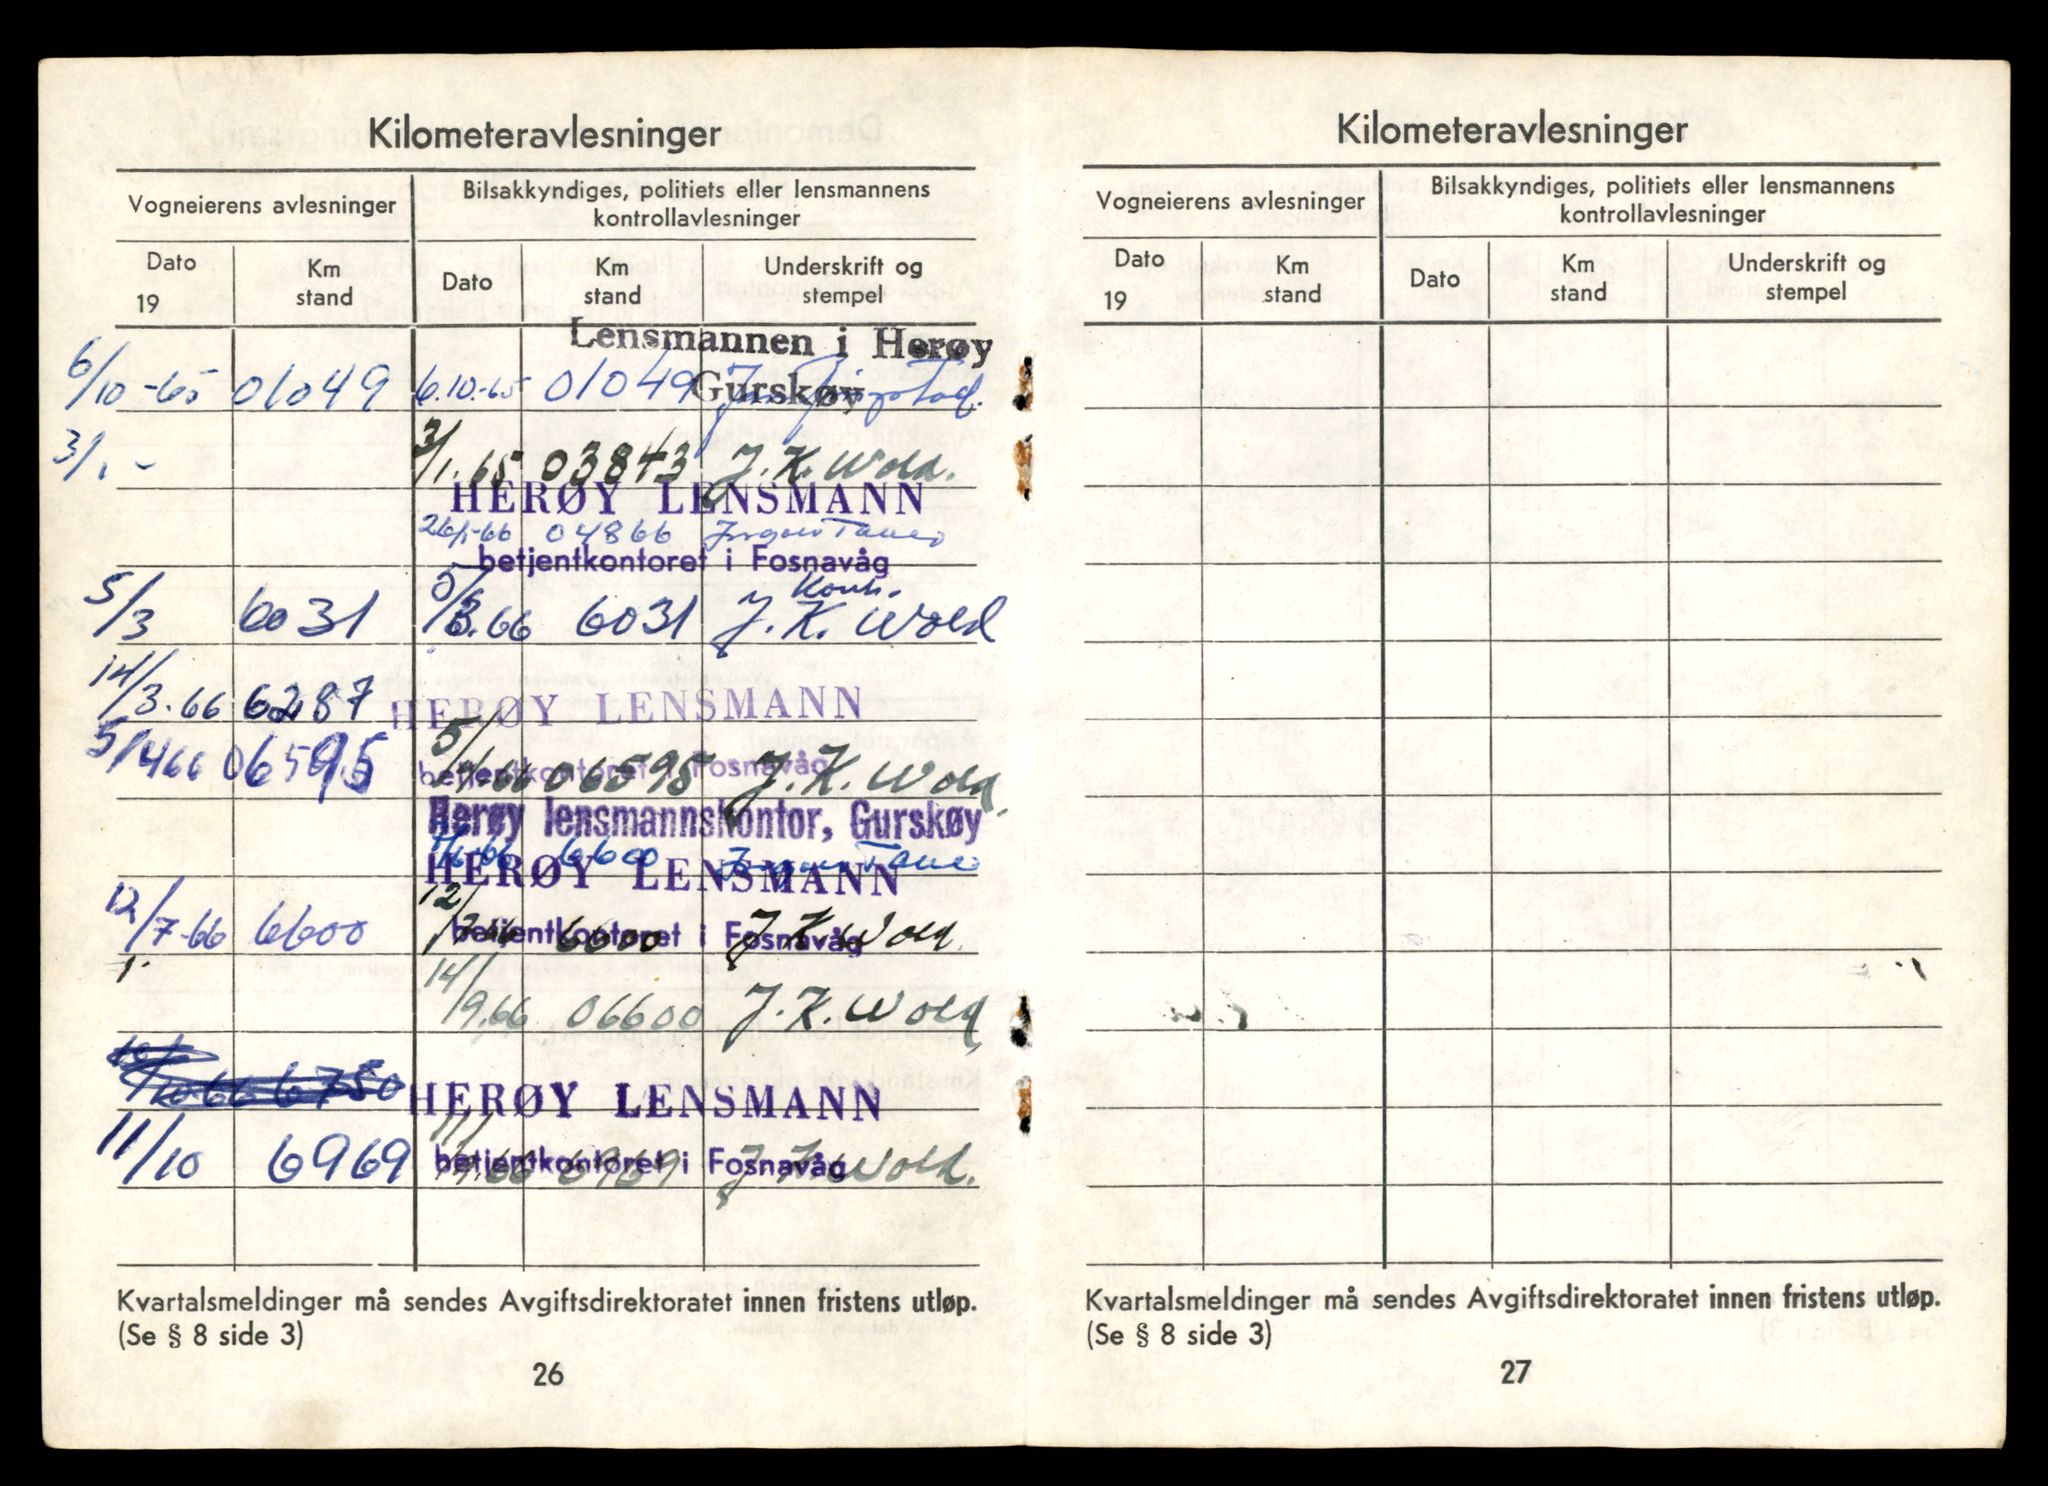 Kilometeravlesninger
Vogneierens avlesninger
Bilsakkyndiges, politiets eller lensmannens
kontrollavlesninger
Dato
19
Km
stand
Dato
Km
stand
Underskrift og
stempel
Lensmannen i Herøy
6/10-65 01049 6.10-65 01049
Gurskøy
3/1 - 3/1.65 03843 J. K. Wold.
HERØY LENSMANN
26/1-66 04866
betjentkontoret i Fosnavåg
5/3 6031 5/3.66 6031 J. K. Wold
14/3.66 6287
HERØY LENSMANN
5/4 66 06595 5/4.66 06595 J. K. Wold.
betjentkontoret i Fosnavåg
Herøy lensmannskontor, Gurskøy
6600
HERØY LENSMANN
12/7-66 6600 12/7.66 6600 J. K. Wold.
betjentkontoret i Fosnavåg
14/9.66 06600 J. K. Wold
6750
HERØY LENSMANN
11/10 6969 6969 J. K. Wold.
betjentkontoret i Fosnavåg
Kvartalsmeldinger må sendes Avgiftsdirektoratet innen fristens utløp.
(Se § 8 side 3)
26
Kilometeravlesninger
Vogneierens avlesninger
Bilsakkyndiges, politiets eller lensmannens
kontrollavlesninger
Dato
19
Km
stand
Dato
Km
stand
Underskrift og
stempel
Kvartalsmeldinger må sendes Avgiftsdirektoratet innen fristens utløp.
(Se § 8 side 3)
27